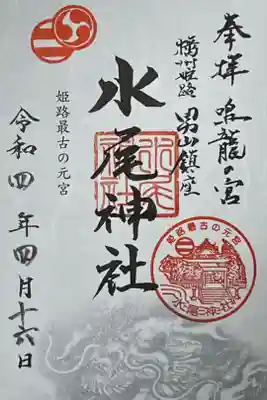 奉拝 鳴龍の宮
播州姫路 男山鎮座
水尾神社
姫路最古の元宮
令和四年四月十六日
姫路最古の元宮
水尾神社